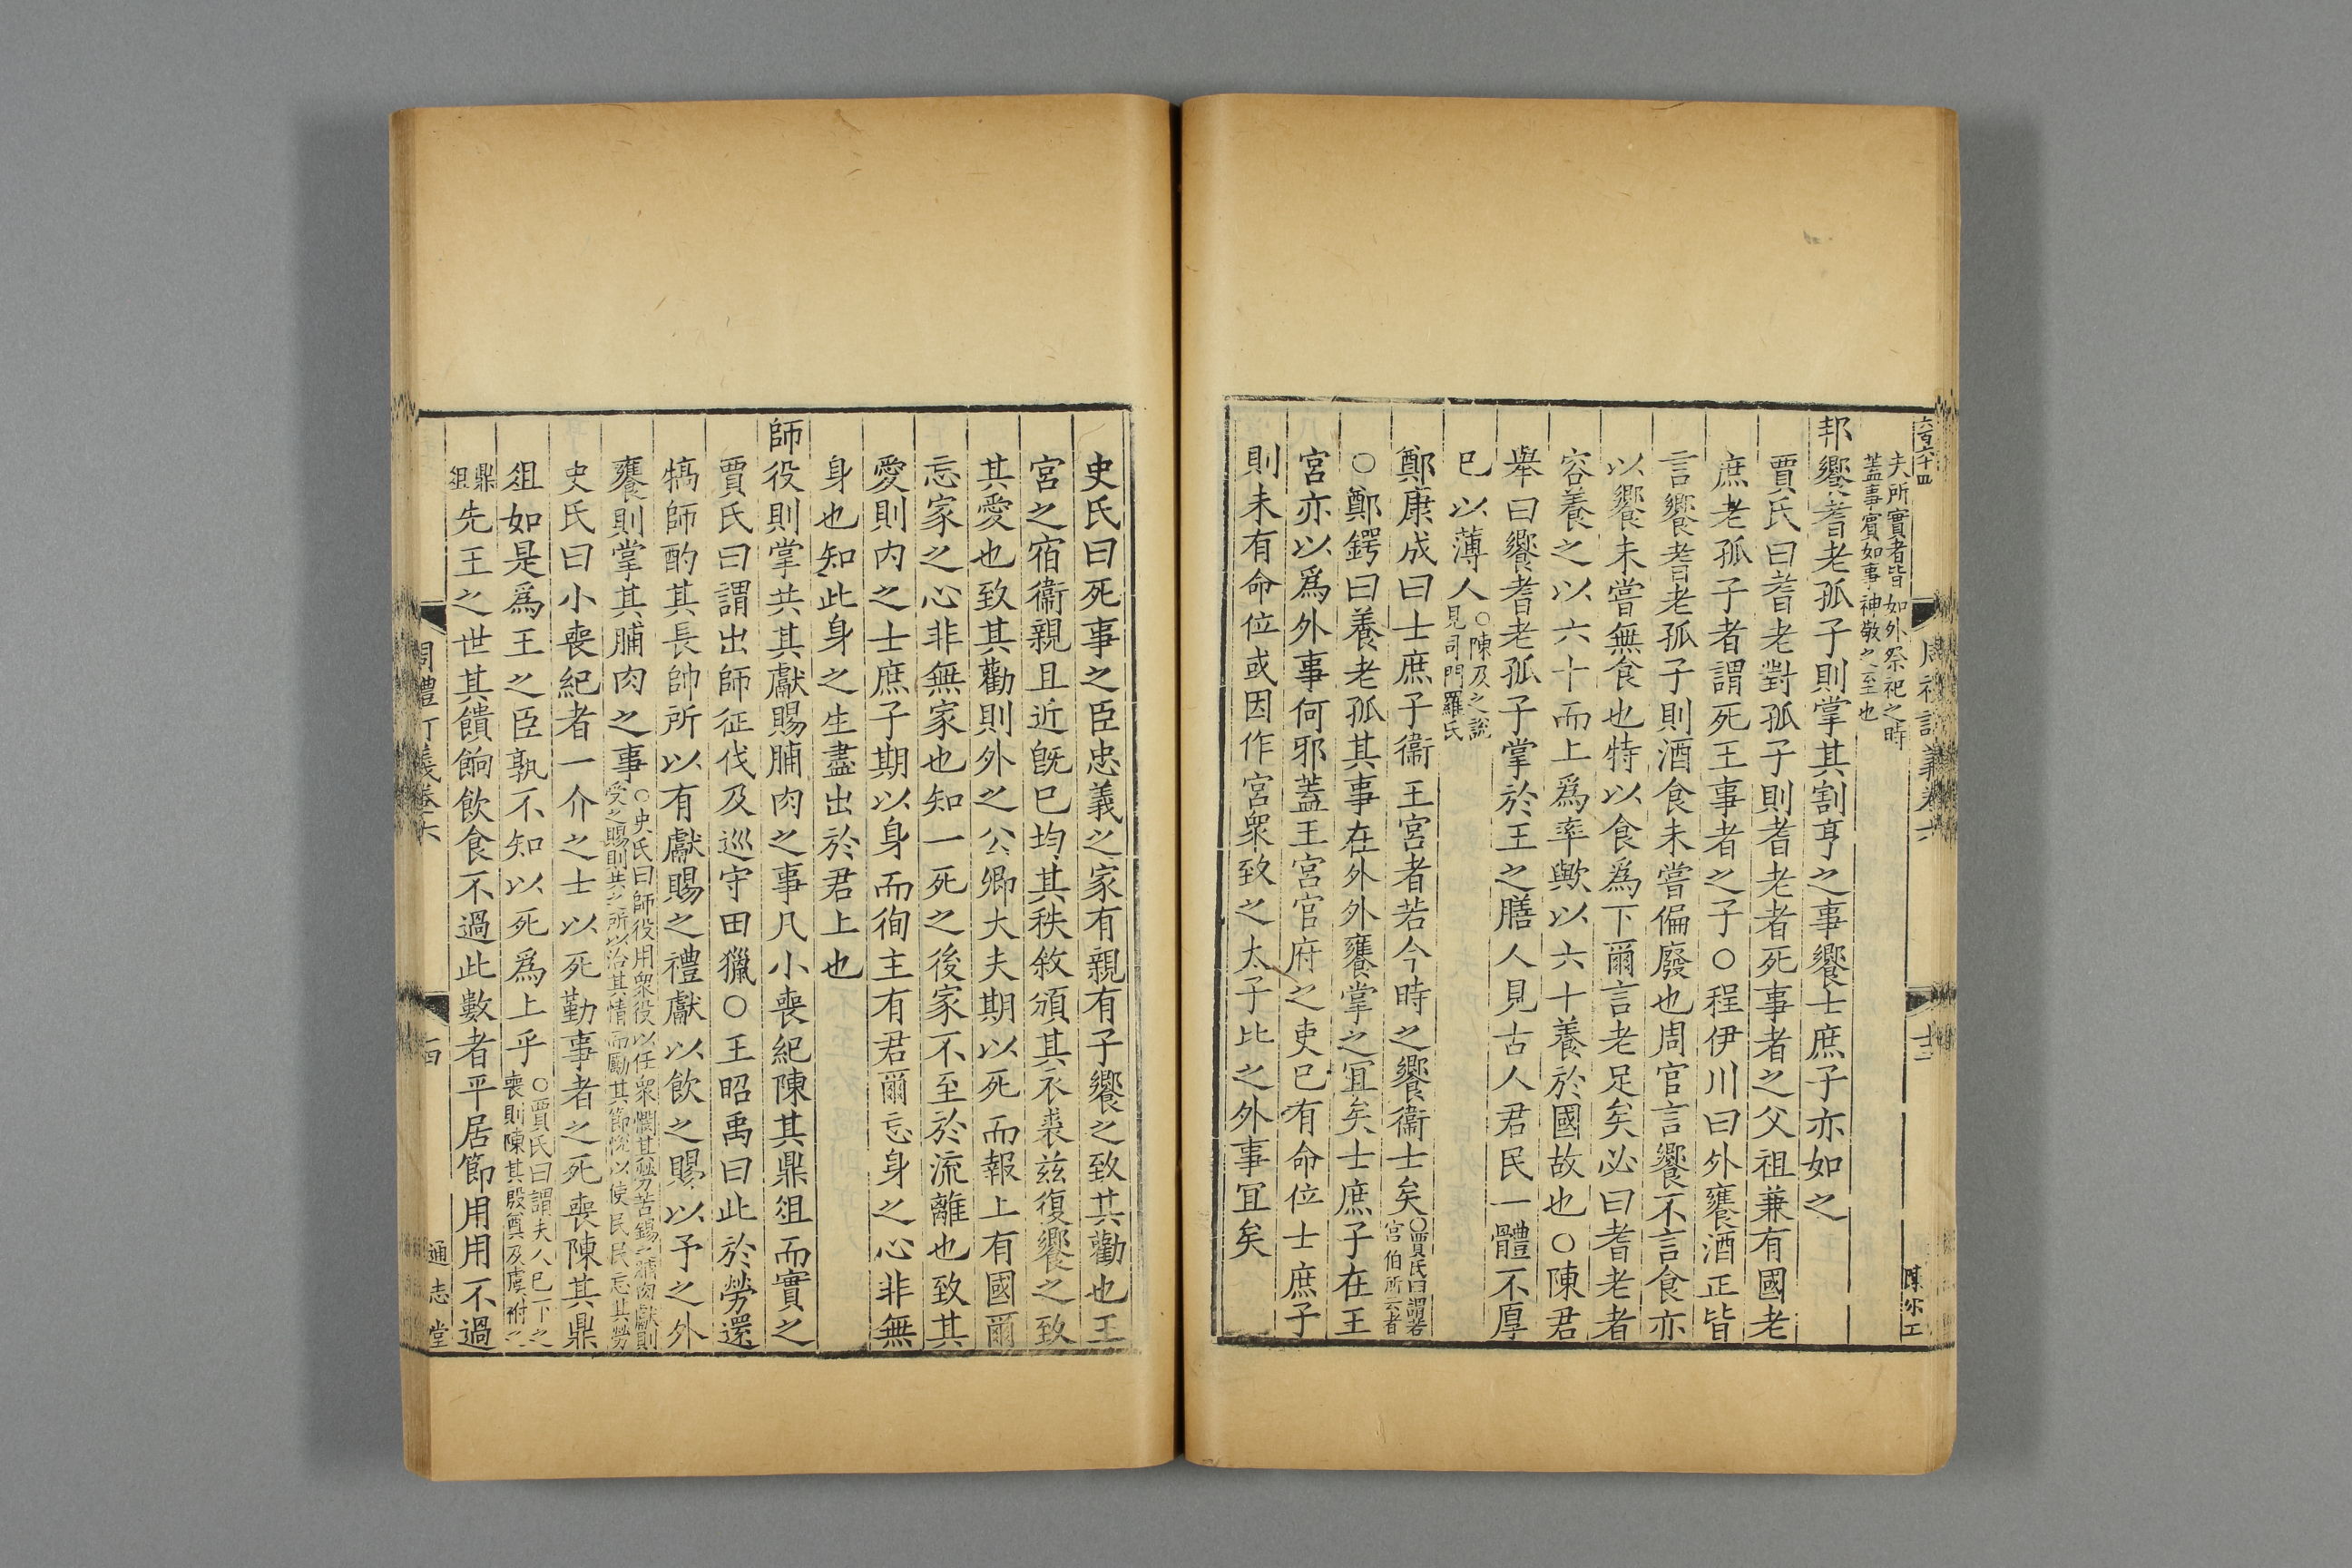 六百六十四
周禮訂義卷六
十三
陳尔工
夫所實者皆如外祭祀之時
蓋事賓如事神敬之至也
邦饗耆老孤子則掌其割亨之事饗士庶子亦如之
賈氏曰耆老對孤子則耆老者死事者之父祖兼有國老
庶老孤子者謂死王事者之子○程伊川曰外饔酒正皆
言饗耆老孤子則酒食未嘗偏廢也周官言饗不言食亦
以饗未嘗無食也特以食爲下爾言老足矣必曰耆老者
容養之以六十而上爲率歟以六十養於國故也○陳君
舉曰饗耆老孤子掌於王之膳人見古人君民一體不厚
已以薄人○陳及之說見司門羅氏
鄭康成曰士庶子衞王宮者若今時之饗衞士矣○賈氏曰謂若宮伯所云者
○鄭鍔曰養老孤其事在外外饔掌之冝矣士庶子在王
宮亦以爲外事何邪蓋王宮官府之吏巳有命位士庶子
則未有命位或因作宮衆致之太子比之外事冝矣
史氏曰死事之臣忠義之家有親有子饗之致其勸也王
宮之宿衞親且近旣巳均其秩敘頒其衣裘兹復饗之致
其愛也致其勸則外之公卿大夫期以死而報上有國爾
忘家之心非無家也知一死之後家不至於流離也致其
愛則内之士庶子期以身而徇主有君爾忘身之心非無
身也知此身之生盡出於君上也
師役則掌共其獻賜脯肉之事凡小喪紀陳其鼎俎而實之
賈氏曰謂出師征伐及巡守田獵○王昭禹曰此於勞還
犒師酌其長帥所以有獻賜之禮獻以飲之賜以予之外
饔則掌其脯肉之事○史氏曰師役用衆役以任衆憫其勞苦錫之脯肉獻則受之賜則共之所以洽其情而勵其節悅以使民民忘其勞
史氏曰小喪紀者一介之士以死勤事者之死喪陳其鼎
俎如是爲王之臣孰不知以死爲上乎○賈氏曰謂夫人巳下之喪則陳其殷奠及虞祔之
鼎俎先王之世其饋餉飲食不過此數者平居節用用不過
周禮訂義卷六
十四
通志堂